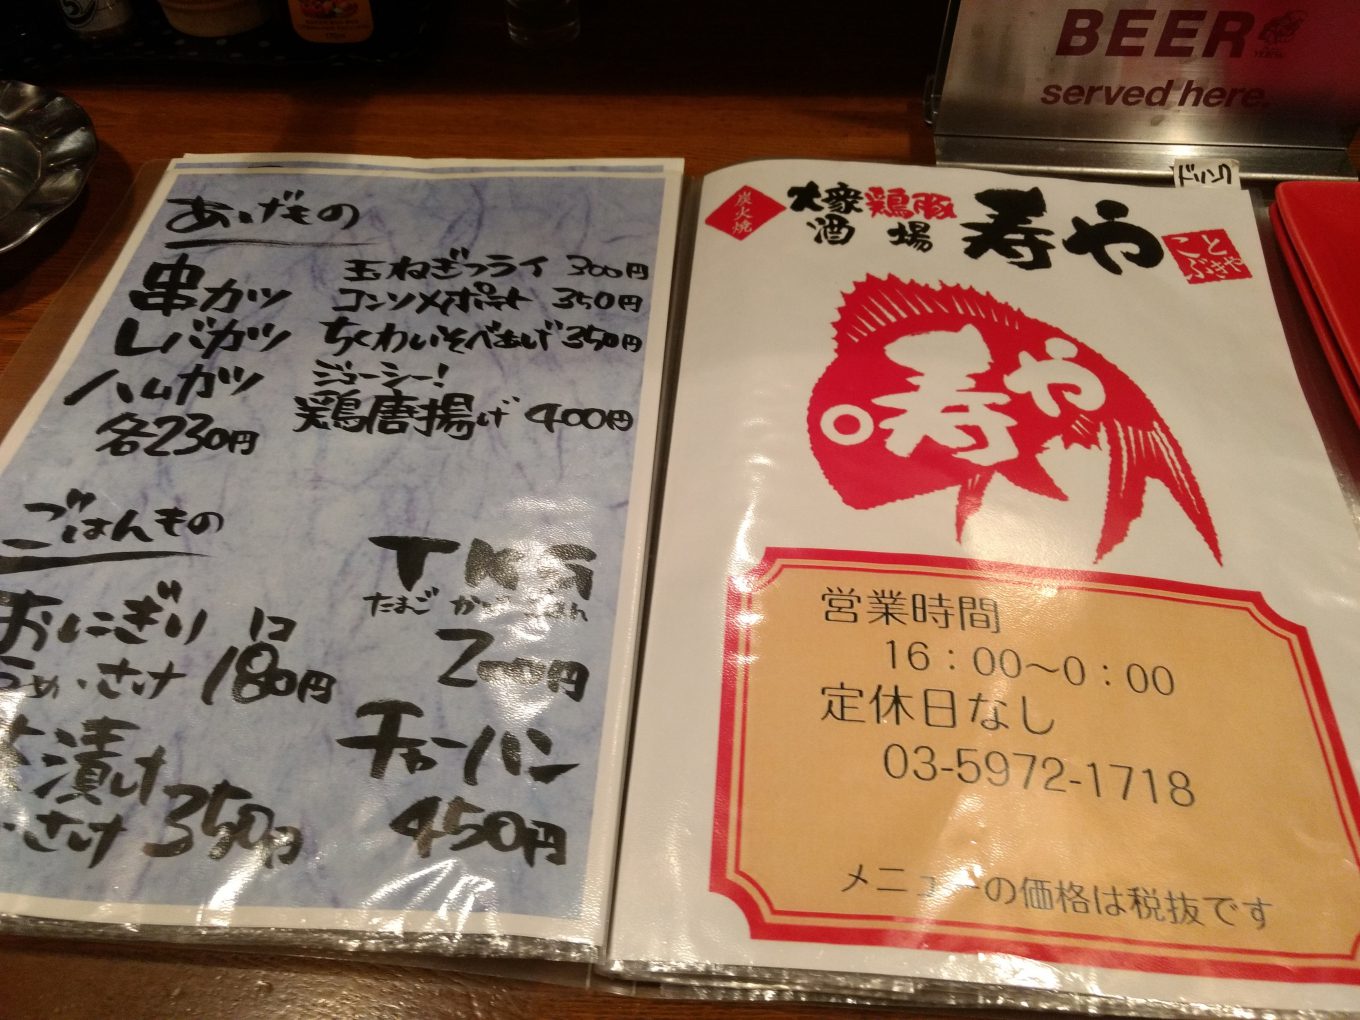 あげもの
串カツ
レバカツ
ハムカツ
各230円
玉ねぎフライ 300円
コンソメポテト 350円
ちくわいそべあげ 350円
ジューシー!
鶏唐揚げ 400円
ごはんもの
おにぎり 1コ
うめ・さけ 180円
茶漬け
さけ 350円
TKG
たまご かけ ごはん
200円
チャーハン
450円
BEER
served here.
ドリンク
炭火焼
大衆酒場
鶏豚
寿や
ことぶきや
寿や
営業時間
16:00〜0:00
定休日なし
03-5972-1718
メニューの価格は税抜です